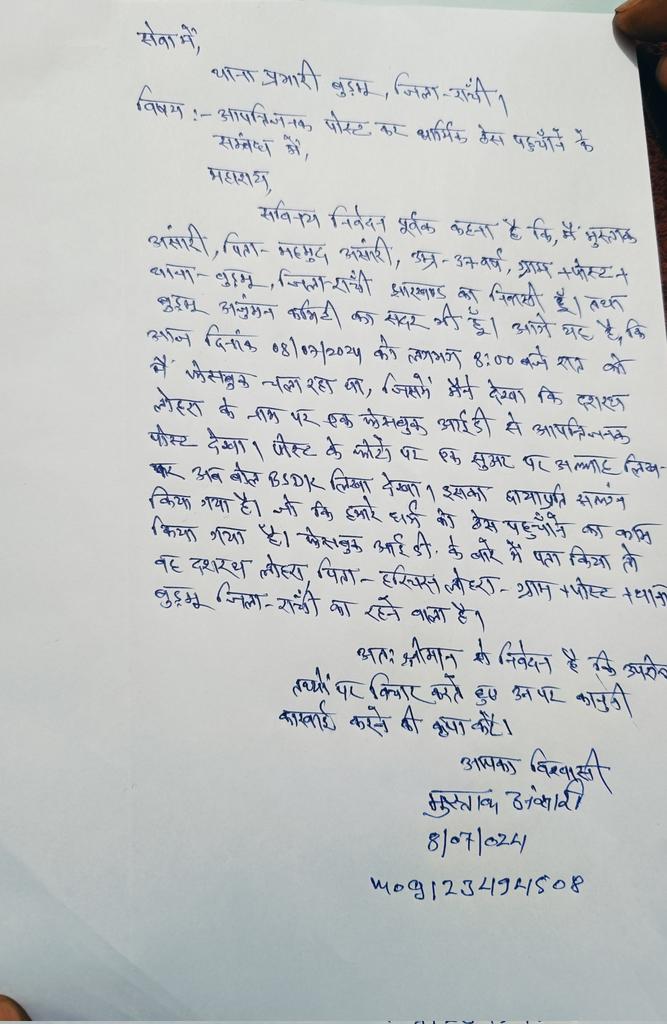 सेवा में,
थाना प्रभारी बुड़मू, जिला-राँची।
विषय :- आपत्तिजनक पोस्ट कर धार्मिक ठेस पहुचाँने के
सम्बंध में,
महाशय,
सविनय निवेदन पूर्वक कहना है कि, मैं मुस्ताक
अंसारी, पिता- महमुद अंसारी, उम्र-37 वर्ष, ग्राम+पोस्ट+
थाना- बुड़मू, जिला-राँची झारखण्ड का निवासी हूँ। तथा
बुड़मू अंजुमन कमिटी का सदर भी हूँ। आगे यह है, कि
आज दिनांक 08/07/2024 को लगभग 8:00 बजे रात को
मैं फेसबुक चला रहा था, जिसमें मैंने देखा कि दशरथ
लोहरा के नाम पर एक फेसबुक आईडी से आपत्तिजनक
पोस्ट देखा। पोस्ट के फोटो पर एक सुअर पर अल्लाह लिख-
कर अब बोल BSDK लिखा देखा। इसका छायाप्रति सलंग्न
किया गया है। जो कि हमारे धर्म को ठेस पहुचाँने का काम
किया गया है। फेसबुक आईडी. के बारे में पता किया तो
वह दशरथ लोहरा, पिता- लोहरा- ग्राम+पोस्ट+थाना
बुड़मू जिला-राँची का रहने वाला है।
अतः श्रीमान से निवेदन है कि उपरोक्
तथ्यों पर विचार करते हुए उन पर कानुनी
कारवाई करने की कृपा करें।
आपका विश्वासी
मुस्ताक अंसारी
8/07/024